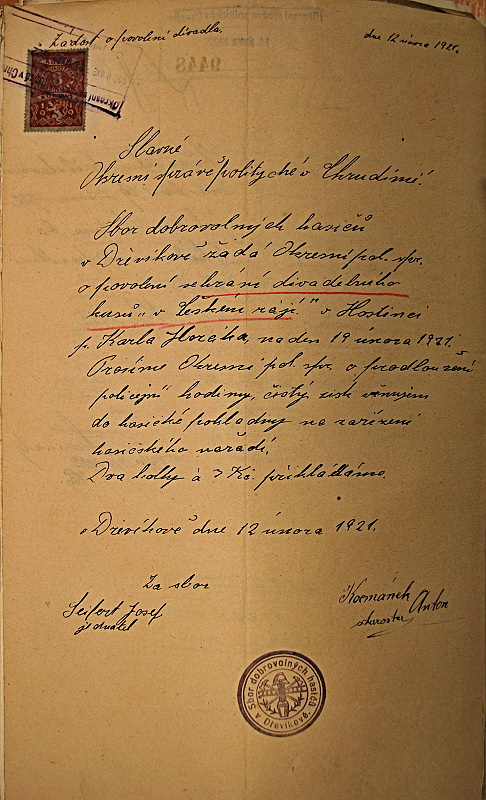 Žádost o povolení divadla.
dne 12 února 1921.
Slavné
Okresní správě politycké v Chrudimi!
Sbor dobrovolných hasičů
v Dřevíkově žádá Okresní pol. spr.
o povolení sehrání divadelního
kusu „v Českém ráji" v Hostinci
p. Karla Horáka, na den 19 února 1921.
Prosíme Okresní pol. spr. o prodloužení
policejní hodiny, čistý zisk věnujem
do hasičské pokladny na zařízení
hasičského nářadí.
Dva kolky à 3 Kč. přikládáme.
v Dřevíkově dne 12 února 1921.
Za sbor
Seifert Josef
jednatel
Kosmánek Anton
starosta
Sbor dobrovolných hasičů
v Dřevíkově.